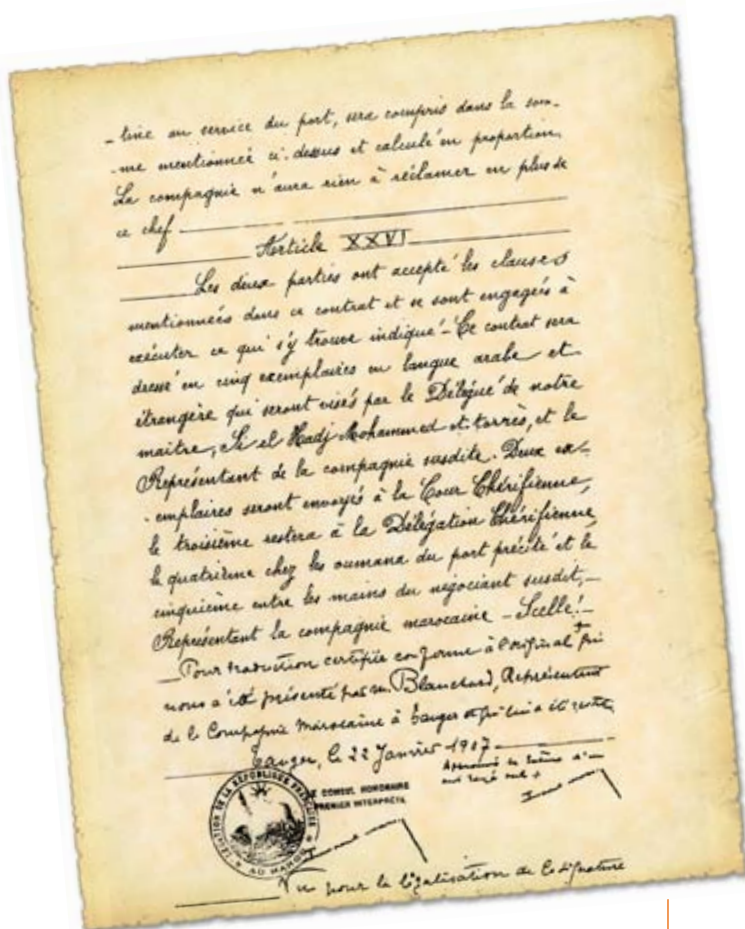 -tiné au service du port, sera compris dans la som-
-me mentionnée ci-dessus et calculé en proportion.
La compagnie n'aura rien à réclamer en plus de
ce chef
Article XXVI
Les deux parties ont accepté les clauses
mentionnées dans ce contrat et se sont engagées à
exécuter ce qui s'y trouve indiqué - Ce contrat sera
dressé en cinq exemplaires en langue arabe et
étrangère qui seront visés par le Délégué de notre
maître, Si el Hadj Mohammed et-torrès, et le
Représentant de la compagnie susdite. Deux ex-
-emplaires seront envoyés à la Cour Chérifienne,
le troisième restera à la Délégation Chérifienne,
le quatrième chez les oumana du port précité et le
cinquième entre les mains du négociant susdit,-
Représentant la compagnie marocaine - Scellé! -
Pour traduction certifiée conforme à l'original qui
nous a été présenté par m. Blanchard, Représentant
de la Compagnie Marocaine à Tanger et qui lui a été
Tanger, le 22 Janvier 1907
LE CONSUL HONORAIRE
PREMIER INTERPRÈTE
LÉGATION DE LA RÉPUBLIQUE FRANÇAISE
AU MAROC
Vu pour la légalisation de la signature